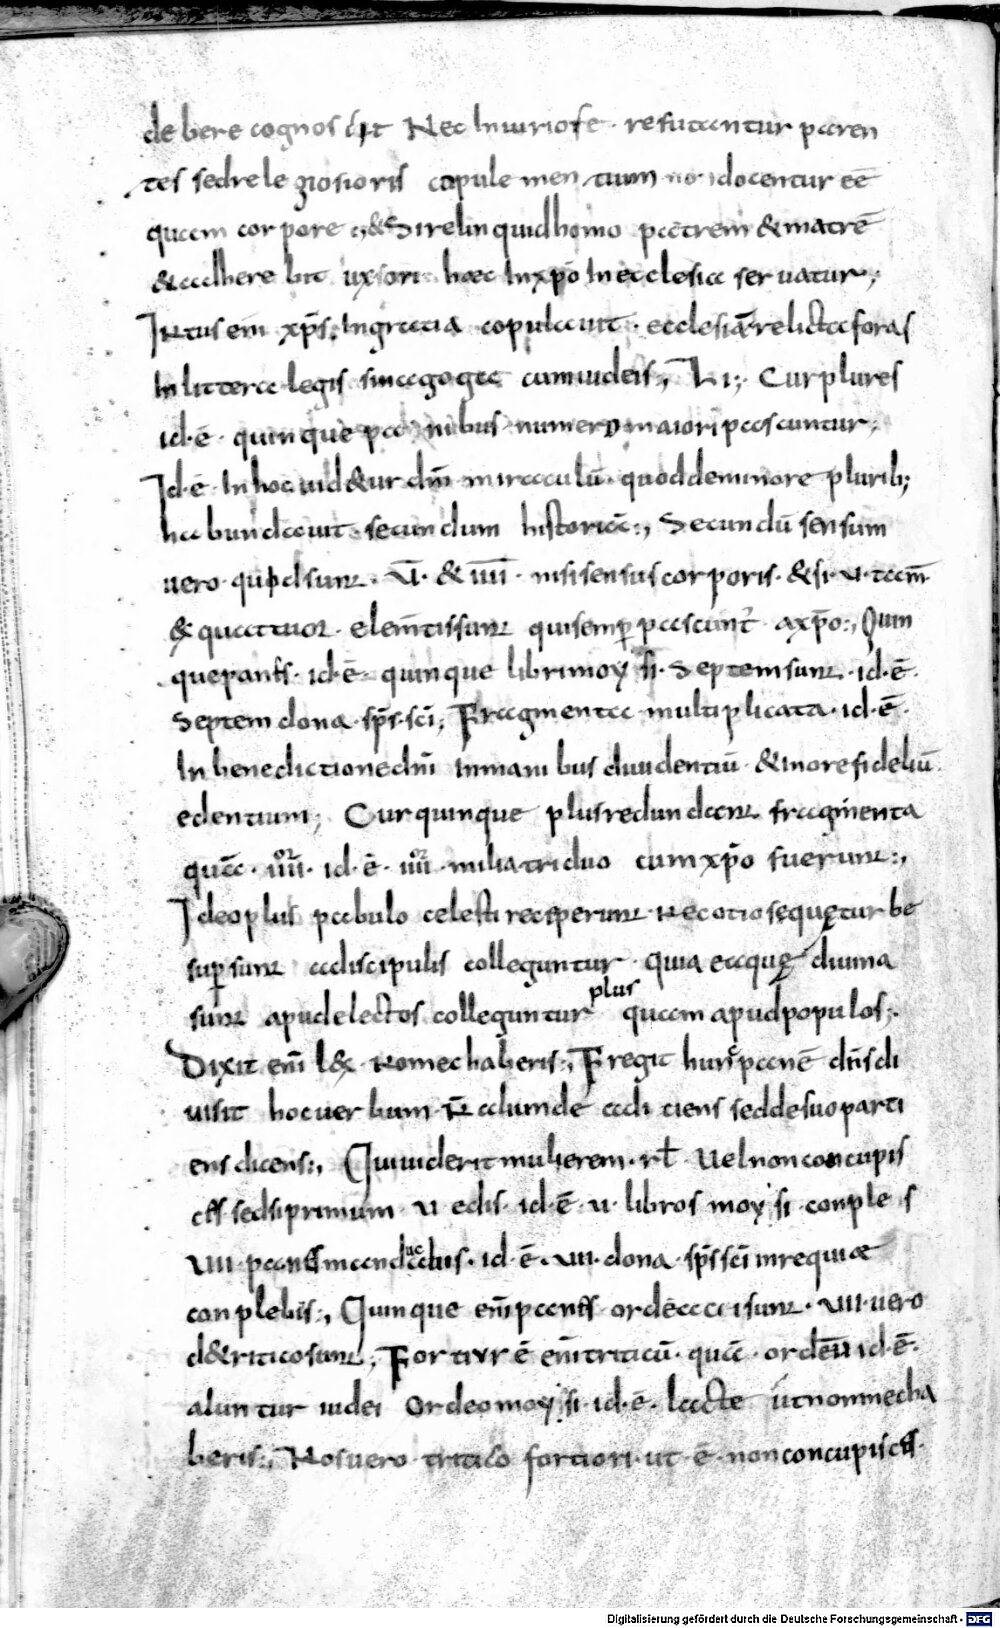 debere cognoscit Nec Iniuriose · refutantur paren
tes sedrelegiosioris copule mentium nos docentur eē
quam corpore ;, &Si relinquid homo patrem & matrē
& adherebit uxsori haec Inxp̄o In ecclesia seruatur;
Iustus em̄ xp̄s Ingratia copulauit · ecclesiā relicta foras
In littera legis sinagoga cum iudeis;, Cur plures
id · ē · quinque panibus numero maiori pascuntur,
Id · ē · In hoc uid&ur dn̄i miraculū · quod deminore plurib;
habundauit · secundum historiā :, Secundū sensum
uero · quod sunt · V̄ · & iiii · nisi sensus corporis · & si · V · tam̄
& quattuor · elem̄tis sunt qui semp̄ pascunt̄ · axp̄o :, Quin
que pants · id · ē · quinque libri moysi · Septem sunt · id · ē ·
Septem dona · sp̄s · sc̄i ; Fragmenta multiplicata · id · ē ·
In benedictione dn̄i Inmanibus diuidentiū · & Inore fidelīu
edentium ; Cur quinque plus redundant fragm̄enta
quā · iiii · id · ē · iiii · milia triduo cum xp̄o fuerunt :,
Ideo plus pabulo celesti reciperunt Nec otiose quęturbe
sup̄sunt adiscipulis colleguntur · quia eaquę diuina
sunt apud electos colleguntur plus quam apud populos;.
Dixit em̄ l& · Nomechaberis :, Fregit hunc panē dn̄s di
uisit hoc uerbum · N̄ aliunde adiciens sed de suo parti
ens dicens :, Qui uiderit mulierem · rl̄ · Uel non concupis
ces sed si primum · V edis · id · ē · V · libros moysi conpleis
VII panes manducabis · id · ē · VII · dona · sp̄s sc̄i in requiæ
conplebis :, Quinque em̄ panes ordeacii sunt · VII · uero
d&riticosunt , Fortiur ē em̄ triticū · quā · ordeū id · ē ·
aluntur iudei Ordeo moysi · id · ē · lacte ut nonmecha
beris :, Nos uero · tritico fortiori · ut · ē · non concupisces ·
Digitalisierung gefördert durch die Deutsche Forschungsgemeinschaft - DFG